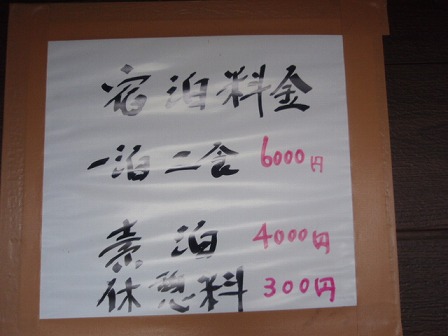 宿泊料金
一泊二食 6000円
素泊 4000円
休憩料 300円